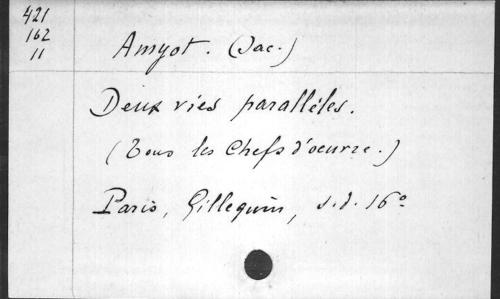 421
162
11
Amyot. (Jac.)
Deux vies parallèles.
(Tous les Chefs d'oeuvre.)
Paris, Gillequin, s.d. 16°